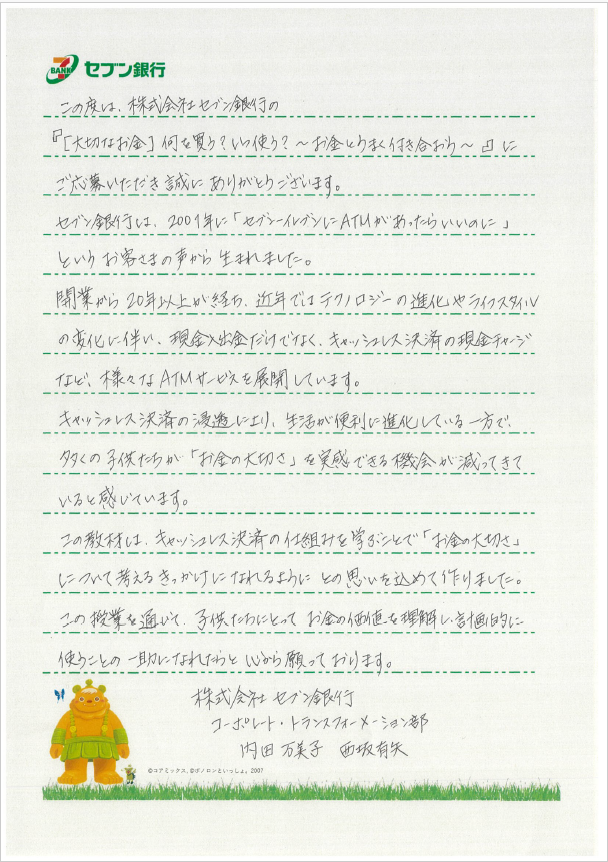 7 BANK セブン銀行
この度は、株式会社セブン銀行の
『［大切なお金］何を買う？いつ使う？～お金とうまく付き合おう～』に
ご応募いただき誠にありがとうございます。
セブン銀行は、2001年に「セブン-イレブンにATMがあったらいいのに」
というお客さまの声から生まれました。
開業から20年以上が経ち、近年ではテクノロジーの進化やライフスタイル
の変化に伴い、現金入出金だけでなく、キャッシュレス決済の現金チャージ
など、様々なATMサービスを展開しています。
キャッシュレス決済の浸透により、生活が便利に進化している一方で、
多くの子供たちが「お金の大切さ」を実感できる機会が減ってきて
いると感じています。
この教材は、キャッシュレス決済の仕組みを学ぶことで「お金の大切さ」
について考えるきっかけになれるようにとの思いを込めて作りました。
この授業を通じて、子供たちにとってお金の価値を理解し計画的に
使うことの一助になれたらと心から願っております。
株式会社セブン銀行
コーポレート・トランスフォーメーション部
内田 万美子 西坂有矢
©コアミックス, ©ポノロンといっしょ。2007